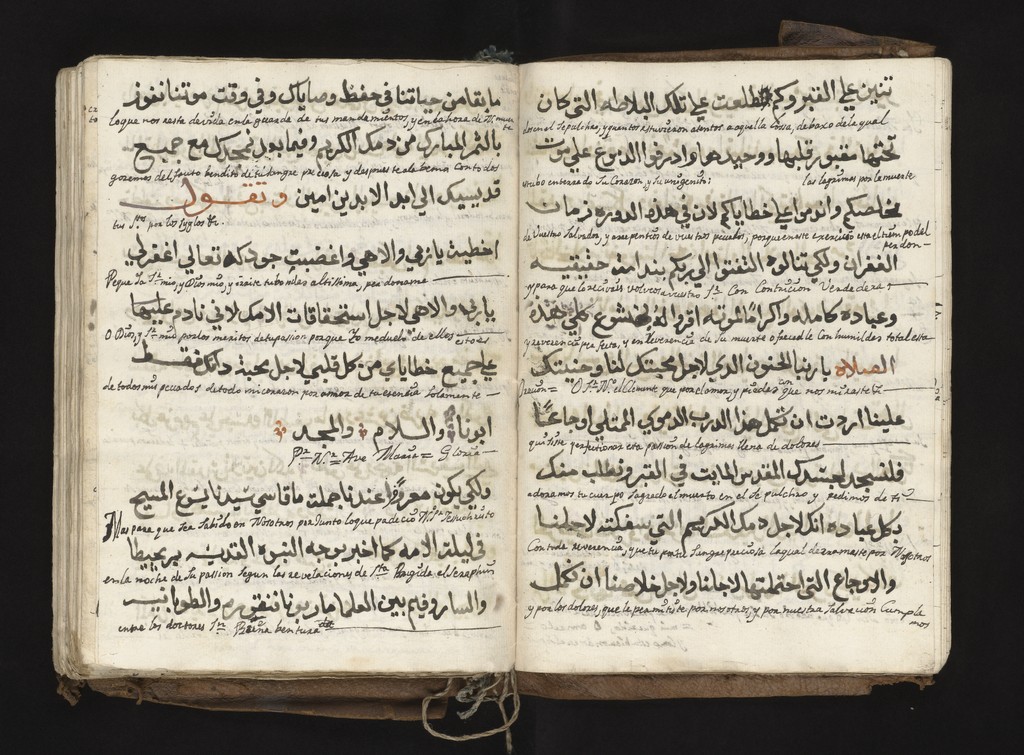 تنين علي القبر وكم تطلعت علي تلك البلاطه التي كان
dos en el Sepulchro, y quantos estuvieron atentos a aquella losa, debaxo de la qual
تحتها مقبور قلبها ووحيدها وادرفوا الدموع علي موت
estubo enterrado Su Corazon, y Su unigenito: las lagrimas por la muerte
مخلصكم واندموا علي خطاياكم لان في هذه الدوره زمان
de Vuestro Salvador, y arrepentios de vuestros pecados, porque en este exercicio esta el tiempo del perdon
الغفران ولكي تنالوه التفتوا الي ربكم بندامة حقيقيه
y para que lo reciveis volveos a vuestro Sr. Con Contricion Verdadera
وعباده كامله واكراما لموته اقروا له بخشوع كلي هذه
y reverencia perfecta, y en reverencia de Su muerte ofrecedle Con humildad total esta
الصلاه يا ربنا الحنون الدي لاجل محبتك لنا وحنيتك
Oracion = O Sr. No. el Clemente que por el amor, y piedad con que nos miraste
علينا اردت ان تكمل هذا الدرب الدموي الممتلي اوجاعا
quisiste perfecionar esta pasion de lagrimas llena de dolores
فلنسجد لجسدك المقدس المايت في القبر ونطلب منك
adoramos tu cuerpo Sagrado el muerto en el Sepulchro y pedimos de ti
بكل عباده انك لاجل دمك الكريم التي سفكته لاجلنا
Con toda reverencia, que tu por tu Sangre preciosa la qual derramaste por Nosotros
والاوجاع التي احتملتها لاجلنا ولاجل خلاصنا ان نكمل
y por los dolores, que le permitiste por nosotros, y por nuestra Salvacion Cumplamos
ما بقا من حياتنا في حفظ وصاياك وفي وقت موتنا نفوز
lo que nos resta de vida en la guarda de tus mandamientos, y en la hora de Na. muerte
بالثمر المبارك من دمك الكريم وفيما بعد نمجدك مع جميع
gozemos del fruto bendito de tu sangre preciosa y despues te alabemos con todos
قديسيك الي ابد الابدين امين وتقول
tus Stos. por los siglos &c.
اخطيت يا ربي والاهي واغضبت جودك تعالي اغفر لي
Peque Sr. mio, y Dios mio, y irrite tu bondad altissima, perdoname
يا ربي والاهي لاجل استحقاقات الامك لاني نادم عليها
O Dios, y Sr. mio por los meritos de tu passion porque Yo me duelo de ellos
علي جميع خطاياي من كل قلبي لاجل محبة داتك فقط
de todos mis pecados de todo mi corazon por amor de tu esencia Solamente
ابونا والسلام والمجد
Pr. No. = Ave Maria = Gloria
ولكي يكون معروفا عندنا جملة ما قاسي سيدنا يسوع المسيح
Mas para que sea Sabido en Nosotros por Junto lo que padecio No. Sr. Jesuchristo
في ليلة الامه كما اخبر بوجه النبوه القديسه بريجيطا
en la noche de Su passion Segun las revelaciones de Sta. Brigida, el Seraphin
والساروفيم بين العلما مار بونافنتورم والطوانيه
entre los doctores Sn. Buenabentura